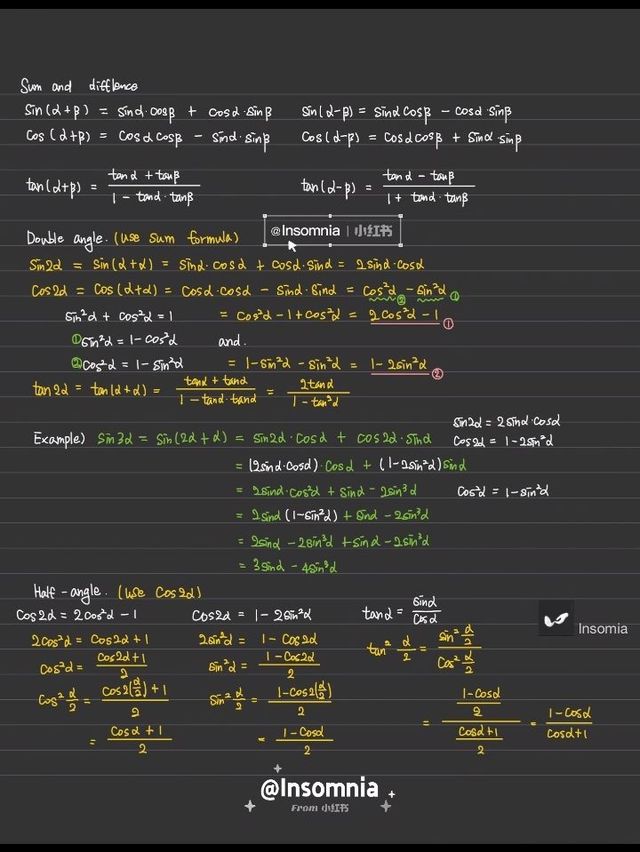 Sum and difflence
sin(α+β) = sinα·cosβ + cosα·sinβ sin(α-β) = sinα cosβ - cosα·sinβ
cos(α+β) = cosα cosβ - sinα·sinβ cos(α-β) = cosα cosβ + sinα·sinβ
tan(α+β) = (tanα + tanβ)/(1 - tanα·tanβ) tan(α-β) = (tanα - tanβ)/(1 + tanα·tanβ)
@Insomnia | 小红书
Double angle. (use sum formula)
sin2α = sin(α+α) = sinα·cosα + cosα·sinα = 2sinα·cosα
cos2α = cos(α+α) = cosα·cosα - sinα·sinα = cos²α② - sin²α①
sin²α + cos²α = 1 = cos²α - 1 + cos²α = 2cos²α - 1 ①
① sin²α = 1 - cos²α and.
② cos²α = 1 - sin²α = 1 - sin²α - sin²α = 1 - 2sin²α ②
tan2α = tan(α+α) = (tanα + tanα)/(1 - tanα·tanα) = 2tanα/(1 - tan²α)
sin2α = 2sinα·cosα
Example) sin3α = sin(2α+α) = sin2α·cosα + cos2α·sinα cos2α = 1 - 2sin²α
= (2sinα·cosα)·cosα + (1-2sin²α)sinα
= 2sinα·cos²α + sinα - 2sin³α cos²α = 1 - sin²α
= 2sinα (1-sin²α) + sinα - 2sin³α
= 2sinα - 2sin³α + sinα - 2sin³α
= 3sinα - 4sin³α
Half-angle. (use cos2α)
cos2α = 2cos²α - 1 cos2α = 1 - 2sin²α tanα = sinα/cosα
Insomia
2cos²α = cos2α + 1 2sin²α = 1 - cos2α tan² α/2 = (sin² α/2)/(cos² α/2)
cos²α = (cos2α + 1)/2 sin²α = (1 - cos2α)/2
cos² α/2 = (cos2(α/2) + 1)/2 sin² α/2 = (1 - cos2(α/2))/2 = ((1 - cosα)/2)/((cosα + 1)/2) = (1 - cosα)/(cosα + 1)
= (cosα + 1)/2 = (1 - cosα)/2
@Insomnia
From 小红书